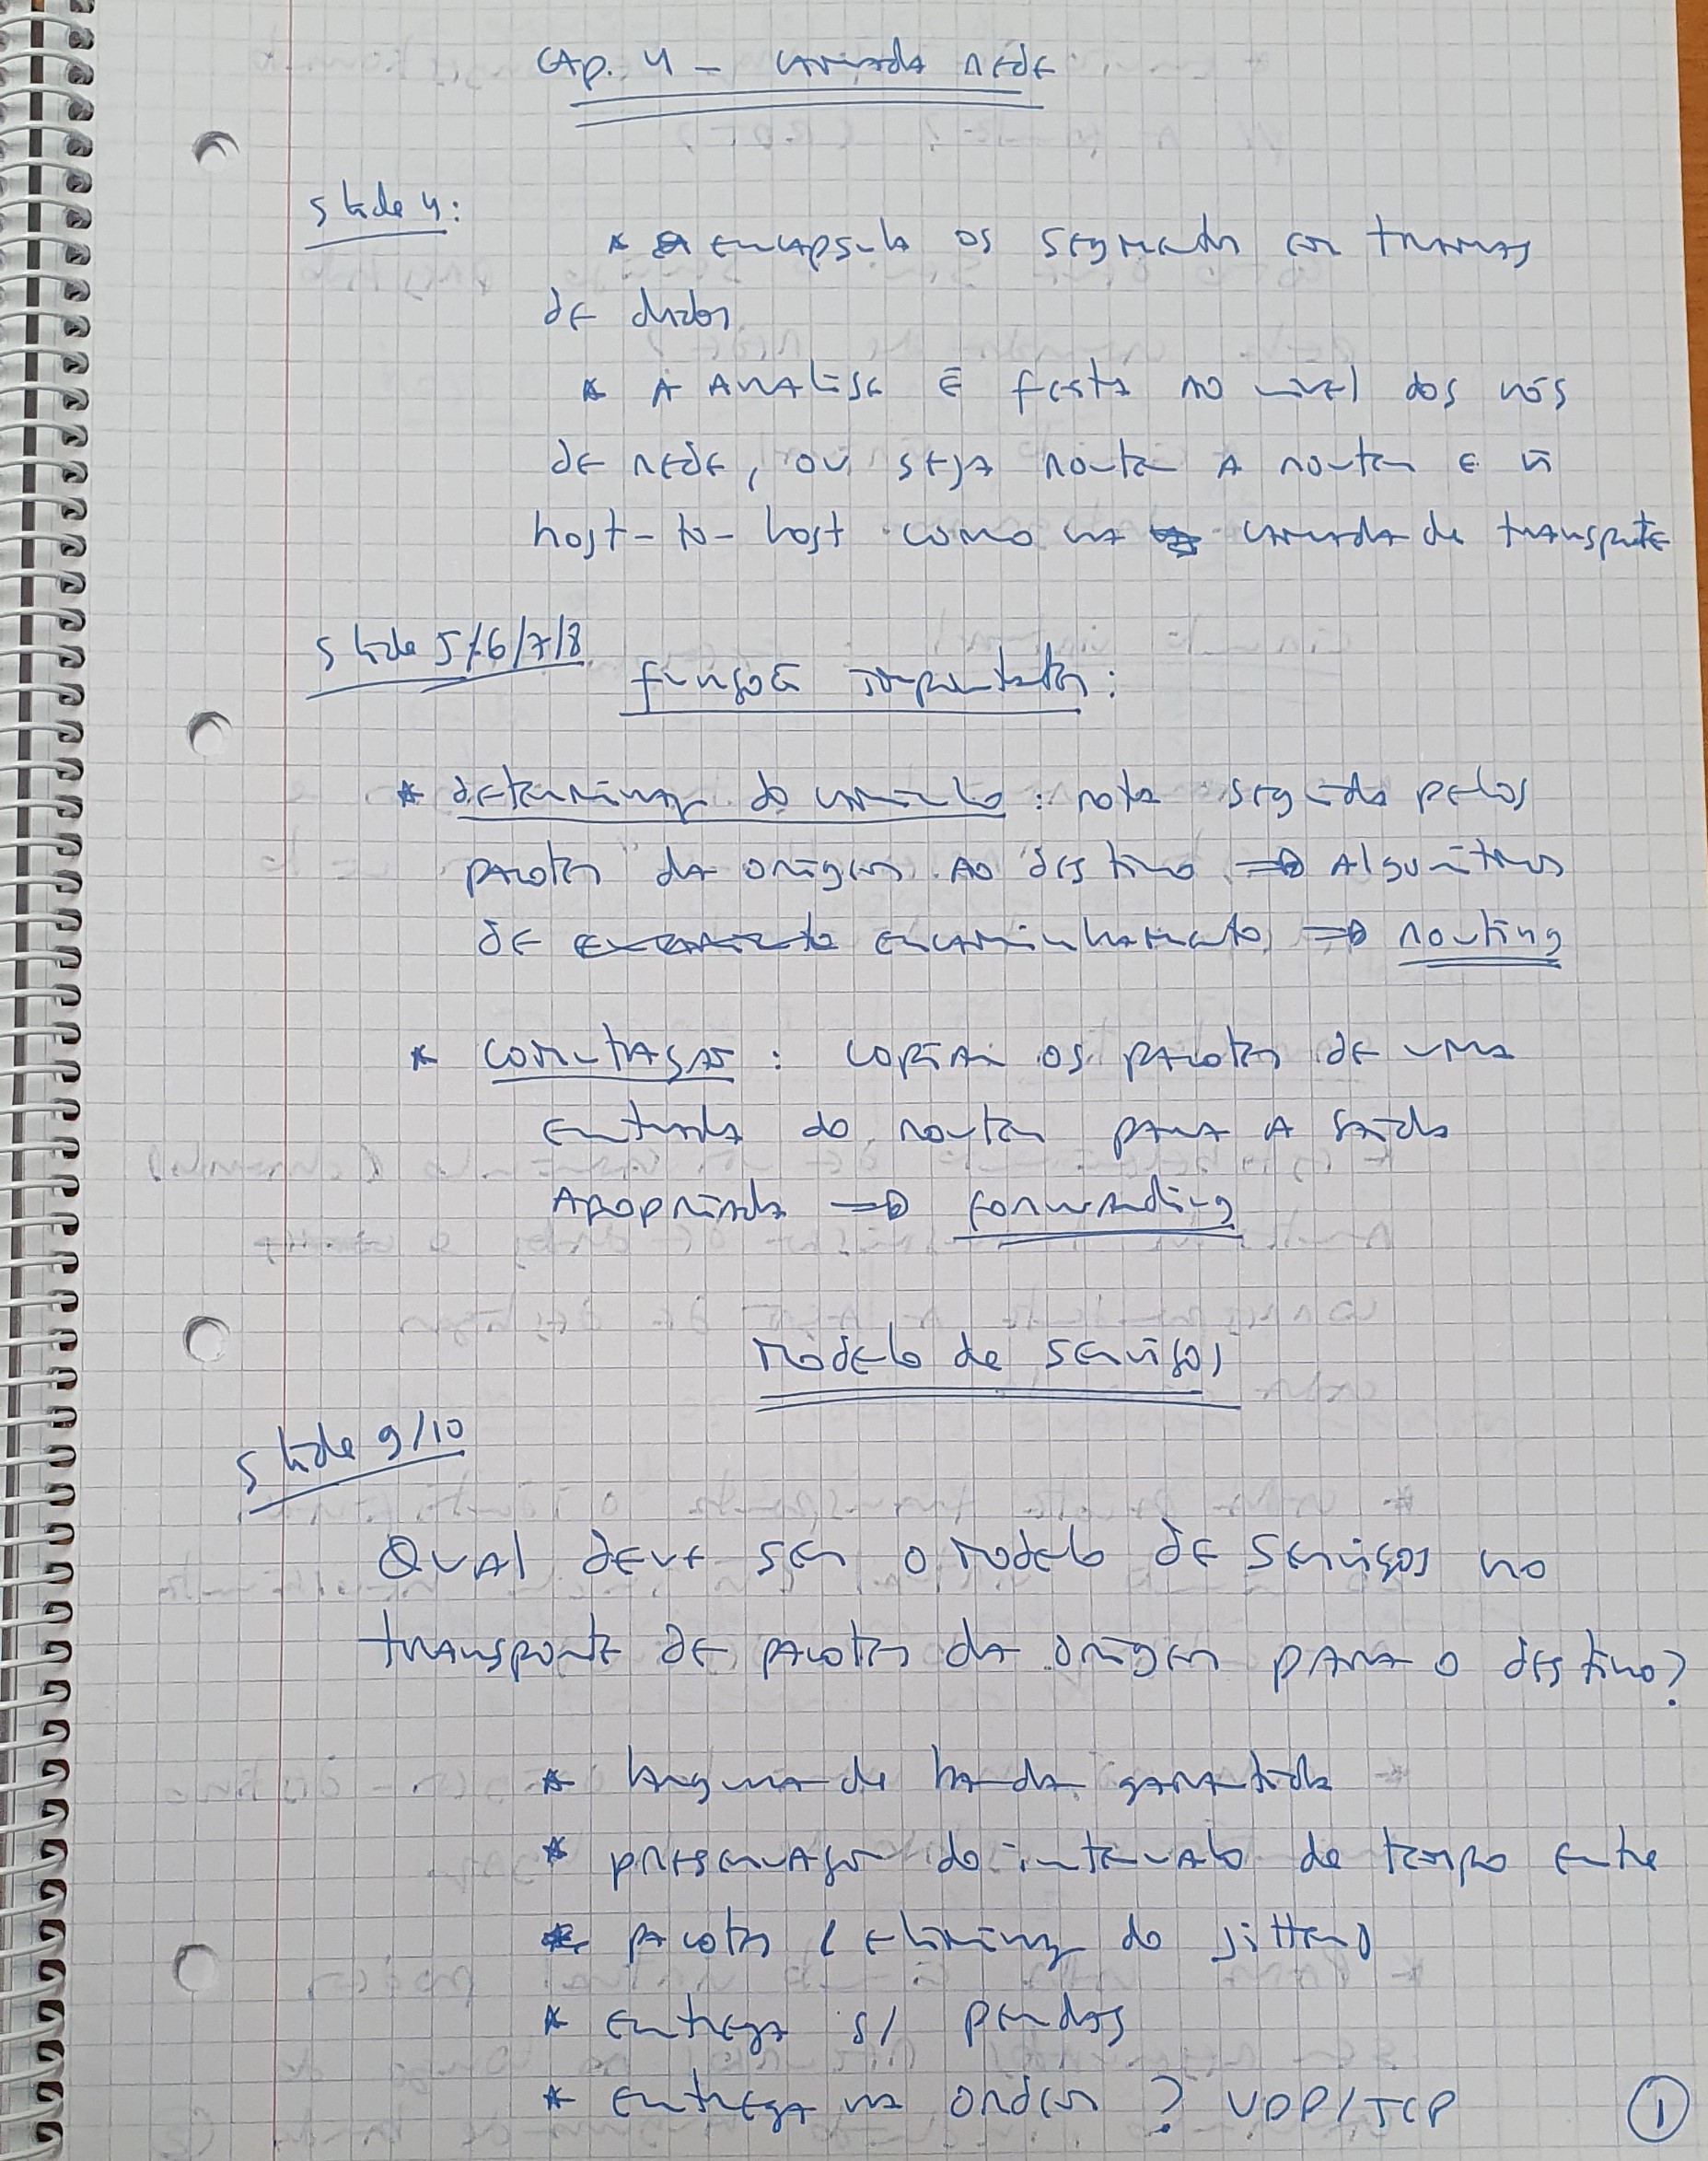 Cap. 4 - camada rede
slide 4:
* encapsula os segmentos em tramas
de dados
* A análise é feita ao nível dos nós
de rede, ou seja router a router e ñ
host-to-host como na camada de transporte
slide 5/6/7/8
funções importantes:
* determinação do caminho: rota seguida pelos
pacotes da origem ao destino => Algoritmos
de encaminhamento => routing
* comutação: copiar os pacotes de uma
entrada do router para a saída
apropriada => forwarding
Modelo de serviços
slide 9/10
Qual deve ser o modelo de serviços no
transporte de pacotes da origem para o destino?
* largura de banda garantida
* preservação do intervalo de tempo entre
* pacotes (eliminação do jitter)
* entrega s/ perdas
* entrega na ordem ? UDP/TCP
1